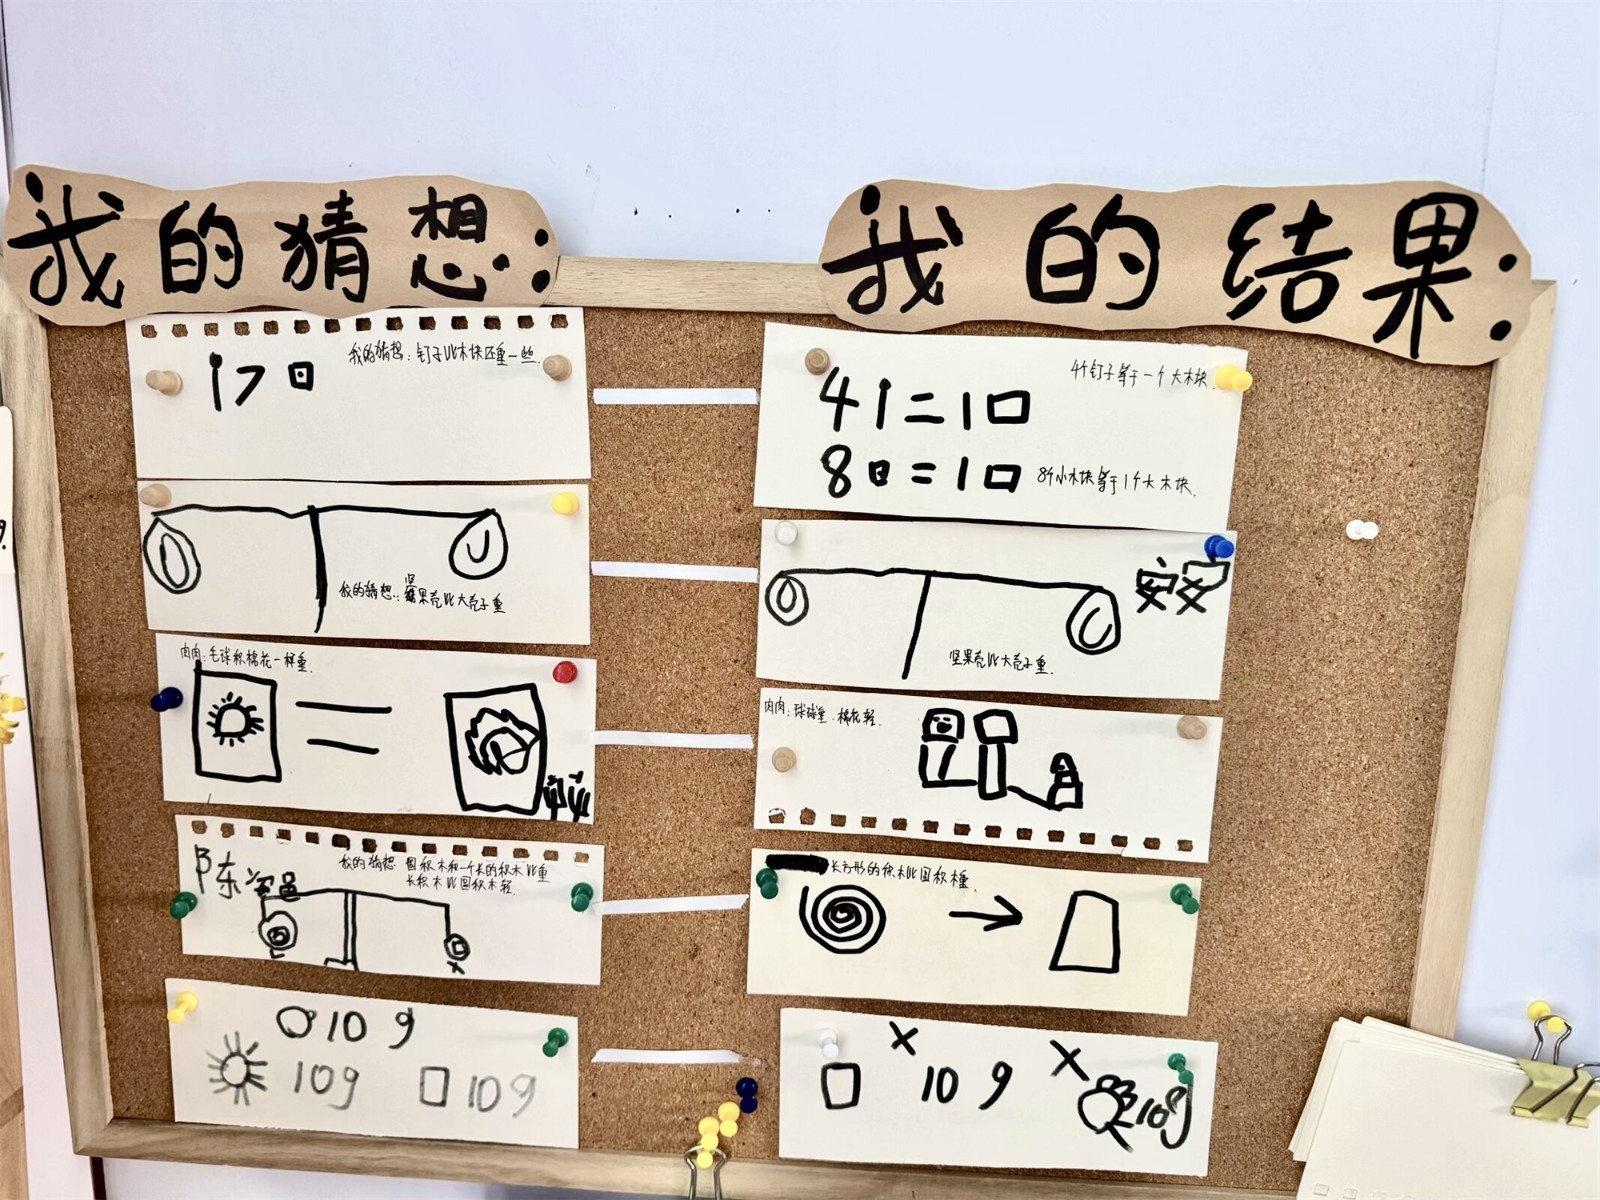 我的猜想：
我的结果：
我的猜想：钉子比木块还重一些.
4个钉子等于一个大木块.
4 = 1
8 = 1
8个小木块等于1个大木块.
我的猜想：坚果壳比大壳子重
安安
坚果壳比大壳子重.
肉肉：毛球和棉花一样重.
=
肉肉：球球重.棉花轻.
陈
我的猜想 圆积木和一个长的积木比重
长积木比圆积木轻.
长方形的积木比圆积木重.
10 g
10g 10g
10 g 10g